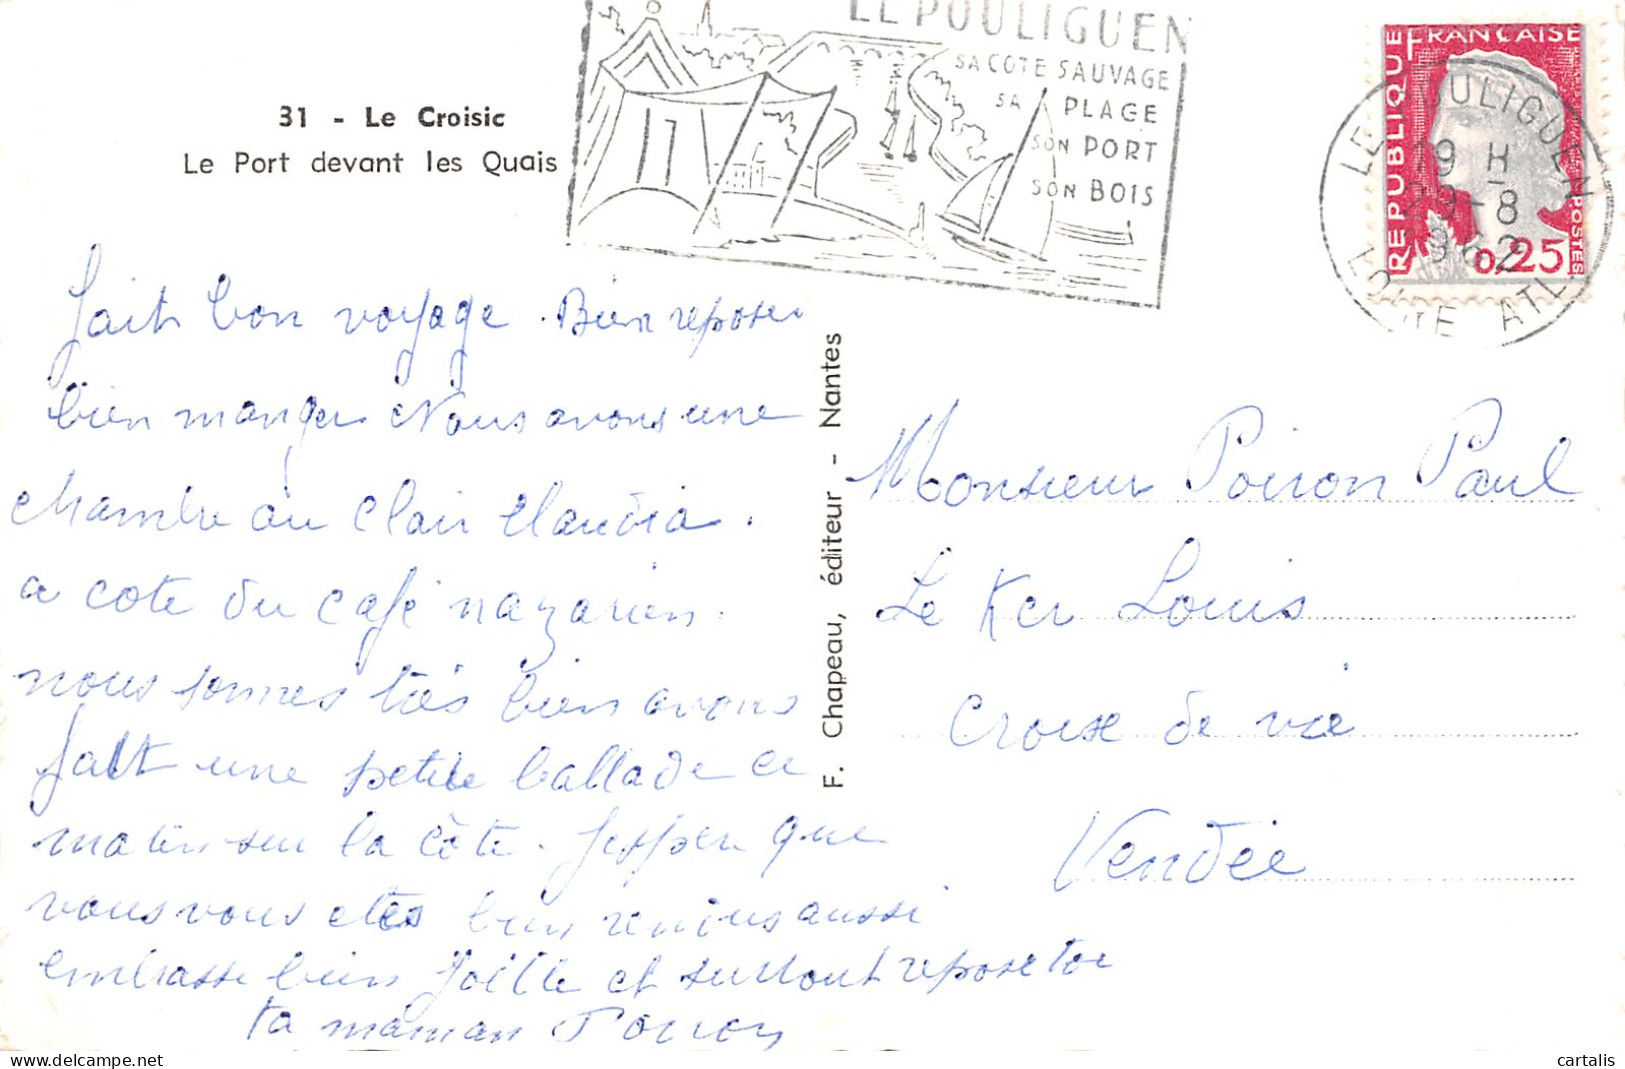 31 - Le Croisic
Le Port devant les Quais
LE POULIGUEN
SA COTE SAUVAGE
SA PLAGE
SON PORT
SON BOIS
REPUBLIQUE FRANÇAISE
POSTES
0,25
LE POULIGUEN
19 H
29-8
1962
LOIRE ATL
fait bon voyage. Bien reposer
bien manger Nous avons une
chambre au Clair Claudia.
a cote du café nazarien.
nous sommes très bien avons
fait une petite ballade ce
matin sur la côte. Jesper que
vous vous etes bien rendus aussi
embrasse bien Joëlle et surtout repose toi
ta maman Poiron
F. Chapeau, éditeur - Nantes
Monsieur Poiron Paul
Le Ker Louis
Croix de vie
Vendée
www.delcampe.net
cartalis